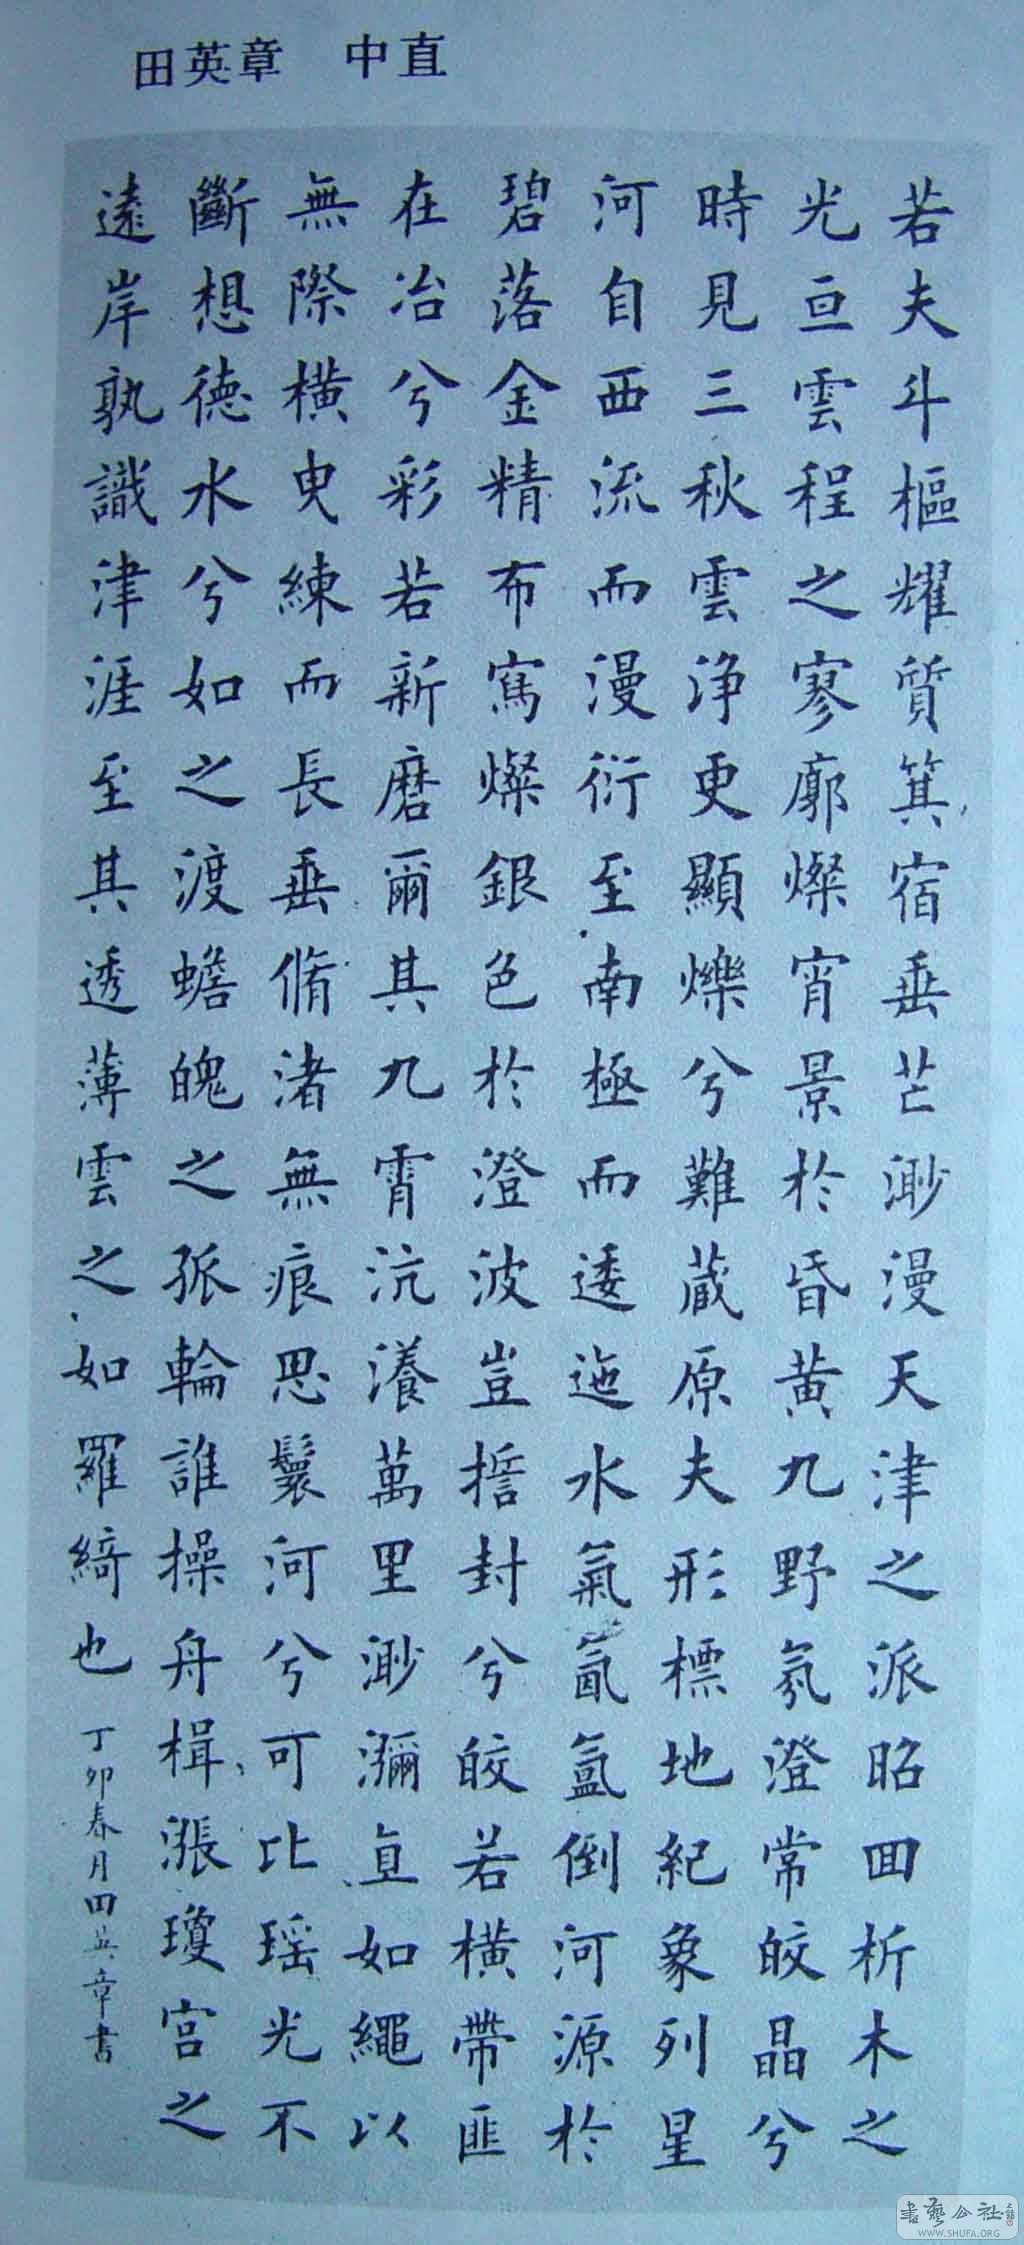 田英章　中直
若夫斗樞耀質箕宿垂芒渺漫天津之派昭回析木之
光亘雲程之寥廓燦宵景於昏黄九野氛澄常皎晶兮
時見三秋雲浄更顯爍兮難蔵原夫形標地紀象列星
河自西流而漫衍至南極而逶迤水氣氤氲倒河源於
碧落金精布寫燦銀色於澄波豈掿封兮皎若横帶匪
在冶兮彩若新磨爾其九霄沆瀁萬里渺瀰亘如繩以
無際横曳練而長垂脩渚無痕思鬟河兮可比瑶光不
斷想德水兮如之渡蟾魄之孤輪誰操舟楫漲瓊宫之
遠岸孰識津涯至其透薄雲之如羅綺也
丁卯春月田英章書
書藝公社
WWW.SHUFA.ORG